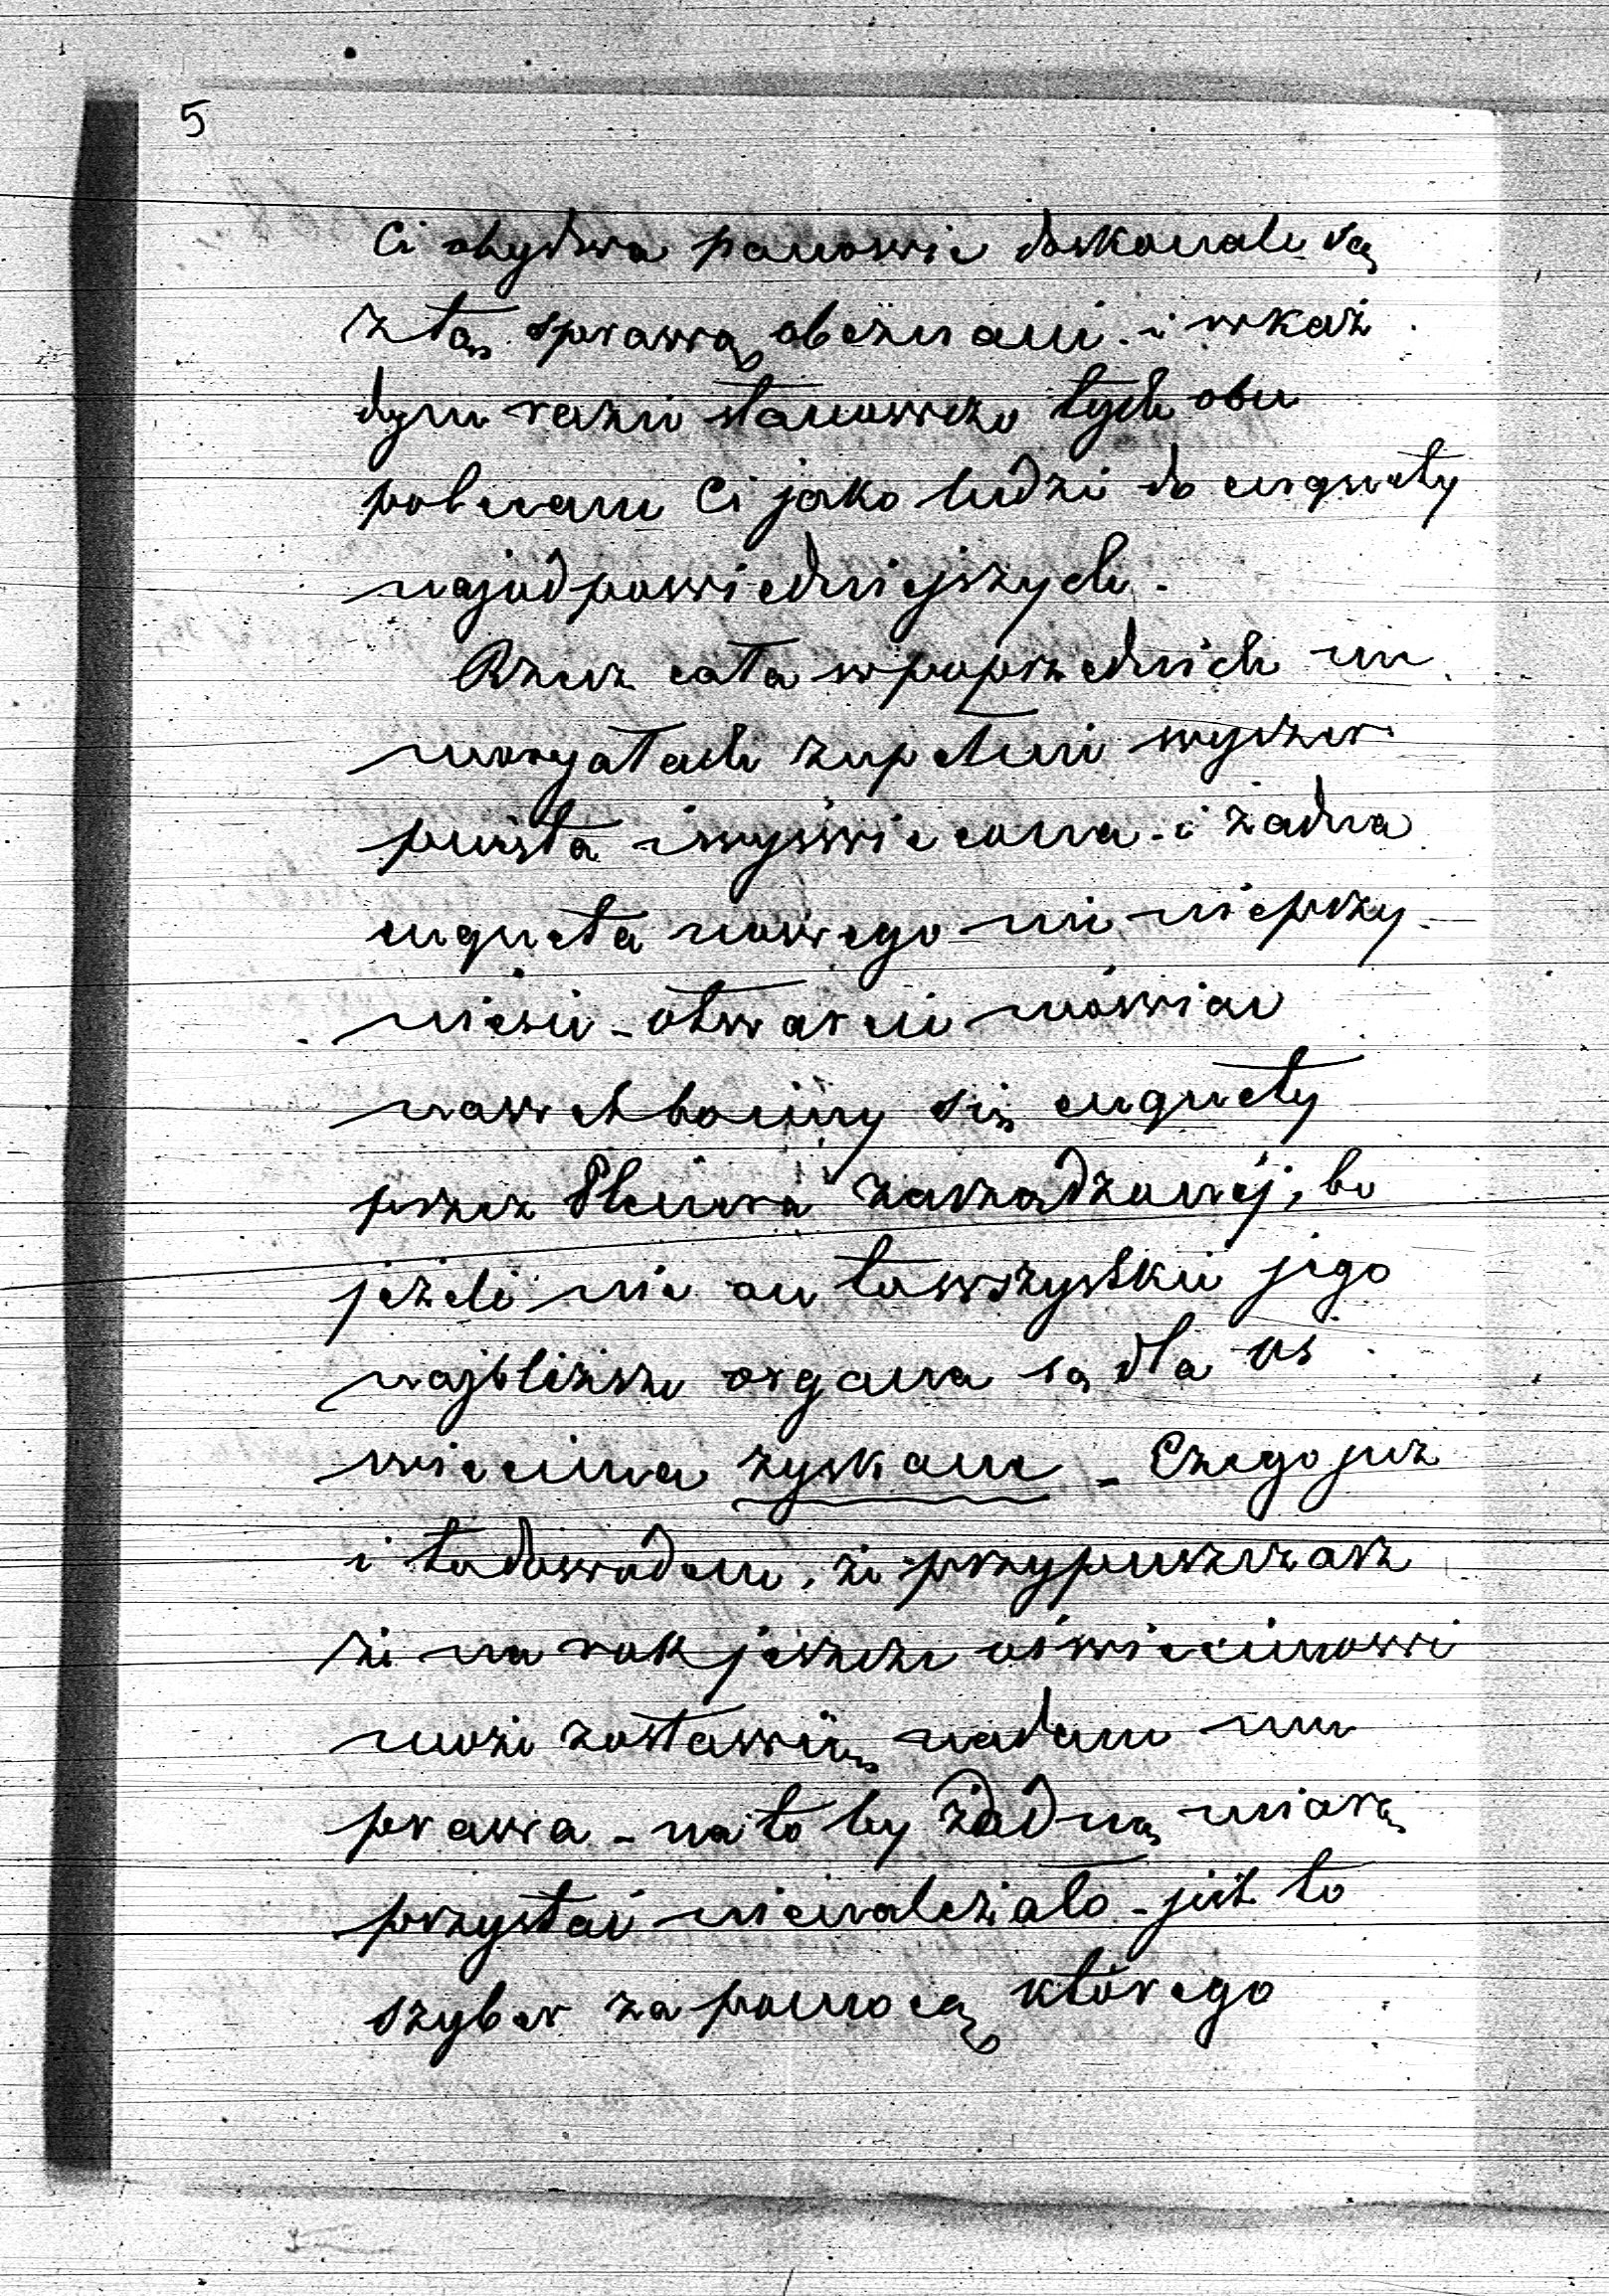 5
Ci obydwa panowie doskonale są
z tą sprawą obeznani i w każ
dym razie stanowczo tych obu
polecam Ci jako ludzi do enquety
najodpowiedniejszych.
Rzecz cała w poprzednich me
moryałach zupełnie wyczer
pnięta i wyświecona - i żadna
enqueta nowego nic nie przy-
niesie - otwarcie mówiąc
nawet boimy się enquety
przez zarządzonej, bo
jeżeli nie on to wszystkie jego
najbliższe organa są dla Oś
więcima zyskane - Czego już
i to dowodem, że przypuszczasz
że na rok jeszcze oświęcimowi
może zostawią nadane mu
prawa - na to by żadną miarą
przystać nie należało - już to
szyber za pomocą którego